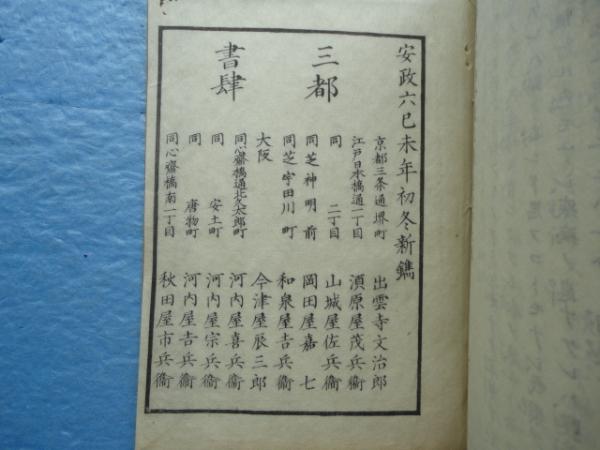 安政六己未年初冬新鐫
三都
書肆
京都三条通堺町 出雲寺文治郎
江戸日本橋通一丁目 須原屋茂兵衞
同 二丁目 山城屋佐兵衞
同芝神明前 岡田屋嘉七
同芝宇田川町 和泉屋吉兵衞
大阪 今津屋辰三郎
同心齋橋通北久太郎町 河内屋喜兵衞
同 安土町 河内屋宗兵衞
同 唐物町 河内屋吉兵衞
同心齋橋南一丁目 秋田屋市兵衞